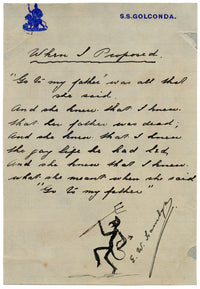 S.S. GOLCONDA.
When I Proposed.
"Go to my father" was all that
she said.
And she knew that I knew
that her father was dead;
And she knew that I knew
the gay life he had led,
And she knew that I knew
what she meant when she said
"Go to my father"